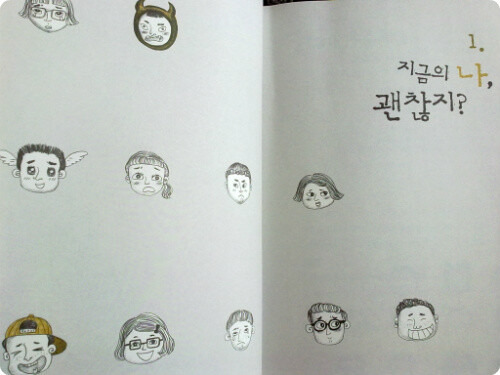 1.
지금의 나,
괜찮지?